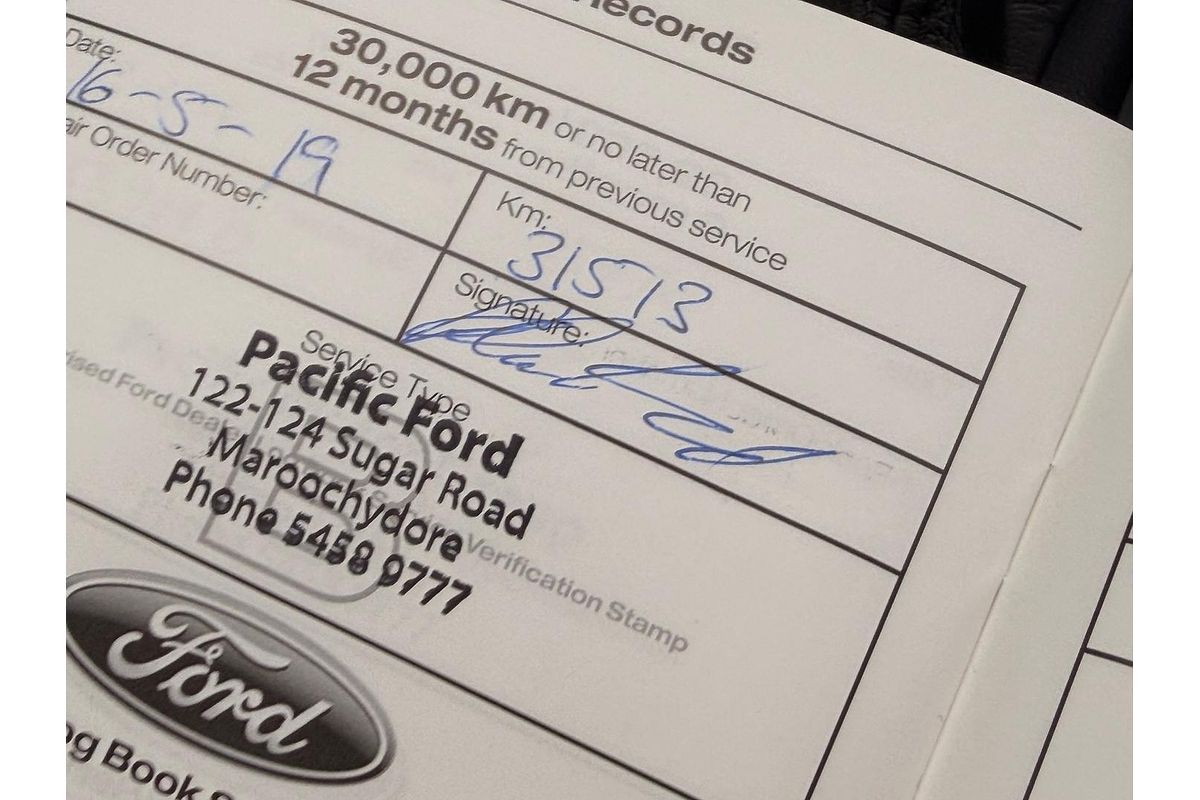 Records
30,000 km or no later than
12 months from previous service
Date:
16-5-19
Km:
31513
air Order Number:
Signature:
Service Type
B
Pacific Ford
122-124 Sugar Road
Maroochydore
Phone 5458 9777
ised Ford Dealer Service Verification Stamp
Ford
og Book S